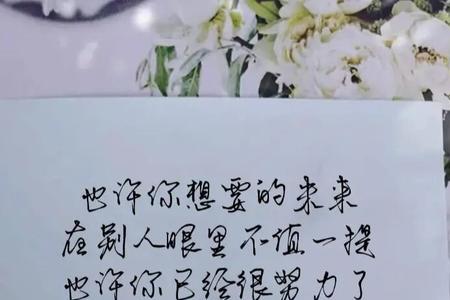 也许你想要的未来
在别人眼里不值一提
也许你已经很努力了